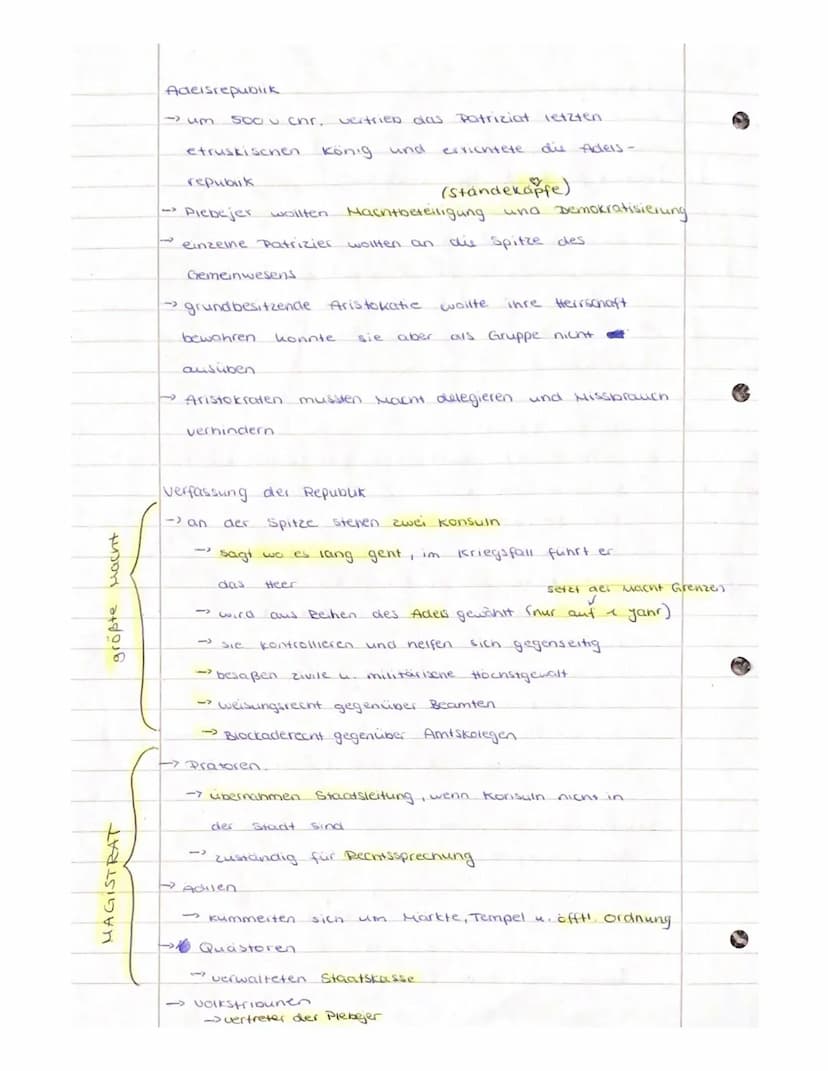 Adelsrepublik
→ um 500 v Chr. vertrieb das Patriziat letzten
etruskischen König und errichtete die Adels-
republik
(Ständekäpfe)
→ Plebejer wollten Machtbeteiligung und Demokratisierung
→ einzelne Patrizier wollten an die Spitze des
Gemeinwesens
→ grundbesitzende Aristokatie wollte ihre Herrschaft
bewahren konnte sie aber als Gruppe nicht
ausüben
→ Aristokraten mussten Macht delegieren und Missbrauch
verhindern
Verfassung der Republik
größte Macht
→ an der Spitze stehen zwei Konsuln
→ sagt wo es lang geht, im Kriegsfall führt er
das Heer
setzt der Macht Grenzen
→ wird aus Reihen des Adels gewählt (nur auf 1 Jahr)
→ sie kontrollieren und helfen sich gegenseitig
→ besaßen zivile u. militärische Höchstgewalt
→ Weisungsrecht gegenüber Beamten
→ Blockaderecht gegenüber Amtskolegen
MAGISTRAT
→ Prätoren
→ übernahmen Staatsleitung, wenn Konsuln nicht in
der Stadt sind
→ zuständig für Rechtssprechung
→ Ädilen
→ kümmerten sich um Märkte, Tempel u. öfftl. Ordnung
→ Quästoren
→ verwalteten Staatskasse
→ Volkstribunen
→ Vertreter der Plebejer